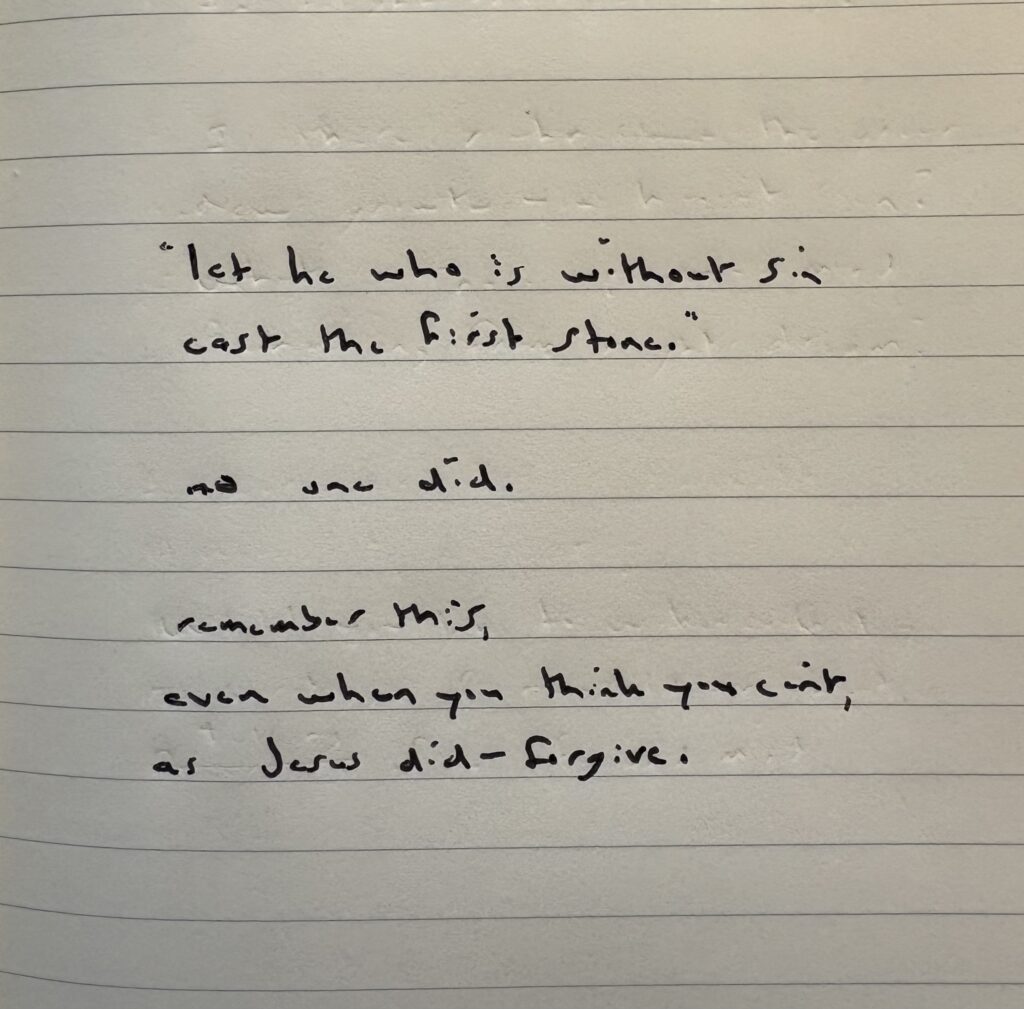 "let he who is without sin
cast the first stone."
no one did.
remember this,
even when you think you can't,
as Jesus did - forgive.